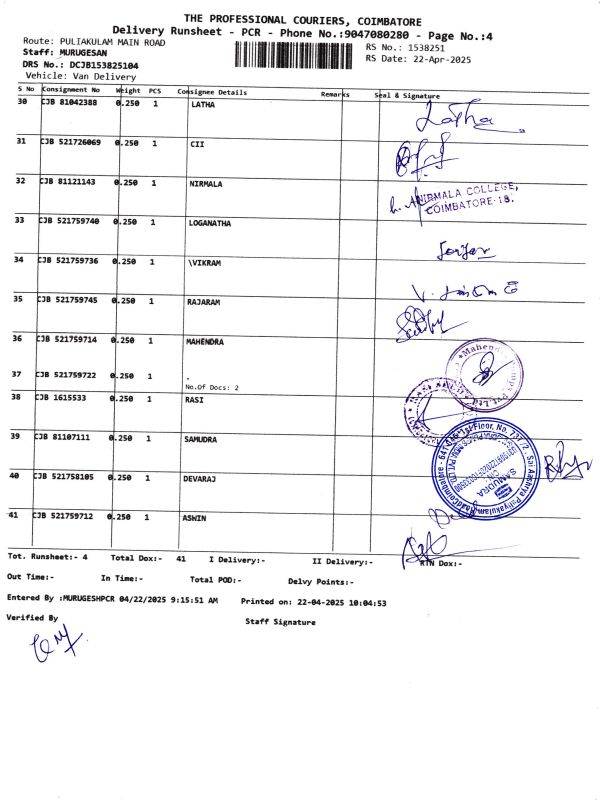 THE PROFESSIONAL COURIERS, COIMBATORE
Delivery Runsheet - PCR - Phone No.:9047080280 - Page No.:4
Route: PULIAKULAM MAIN ROAD
RS No.: 1538251
Staff: MURUGESAN
RS Date: 22-Apr-2025
DRS No.: DCJB153825104
Vehicle: Van Delivery
S No Consignment No Weight PCS Consignee Details Remarks Seal & Signature
30 CJB 81042388 0.250 1 LATHA Latha
31 CJB 521726069 0.250 1 CII
32 CJB 81121143 0.250 1 NIRMALA
NIRMALA COLLEGE,
COIMBATORE-18.
33 CJB 521759740 0.250 1 LOGANATHA
34 CJB 521759736 0.250 1 \VIKRAM
35 CJB 521759745 0.250 1 RAJARAM
36 CJB 521759714 0.250 1 MAHENDRA
37 CJB 521759722 0.250 1 .
No.Of Docs: 2
38 CJB 1615533 0.250 1 RASI
39 CJB 81107111 0.250 1 SAMUDRA
SAMUDRA
40 CJB 521758105 0.250 1 DEVARAJ
41 CJB 521759712 0.250 1 ASWIN
Tot. Runsheet:- 4 Total Dox:- 41 I Delivery:- II Delivery:- RTN Dox:-
Out Time:- In Time:- Total POD:- Delvy Points:-
Entered By :MURUGESHPCR 04/22/2025 9:15:51 AM Printed on: 22-04-2025 10:04:53
Verified By Staff Signature